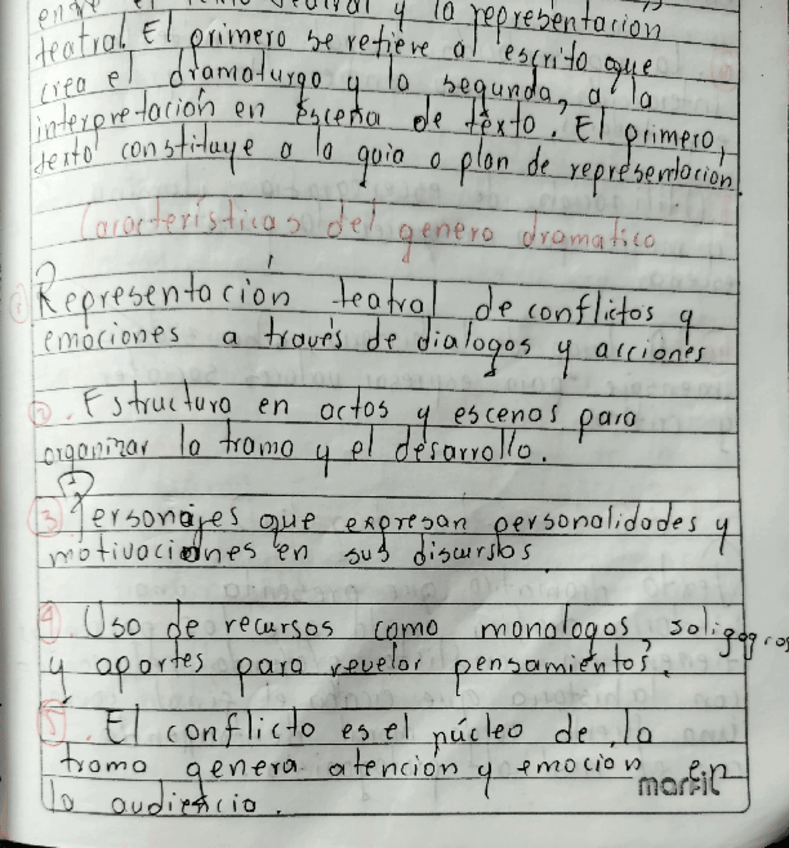 y la representacion
teatral El primero se refiere al escrito que
crea el dramaturgo y la segunda, a la
interpretación en escena de texto. El primero,
texto constituye a la guia o plan de representacion.
Caracteristicas del genero dramatico
1 Representación teatral de conflictos y
emociones a través de dialogos y acciones
2. Estructura en actos y escenas para
organizar la trama y el desarrollo.
3 Personajes que expresan personalidades y
motivaciones en sus discursos.
4. Uso de recursos como monologos,
y aportes para revelar pensamientos.
5. El conflicto es el núcleo de la
trama genera atención y emocion en
la audiencia.
marfil